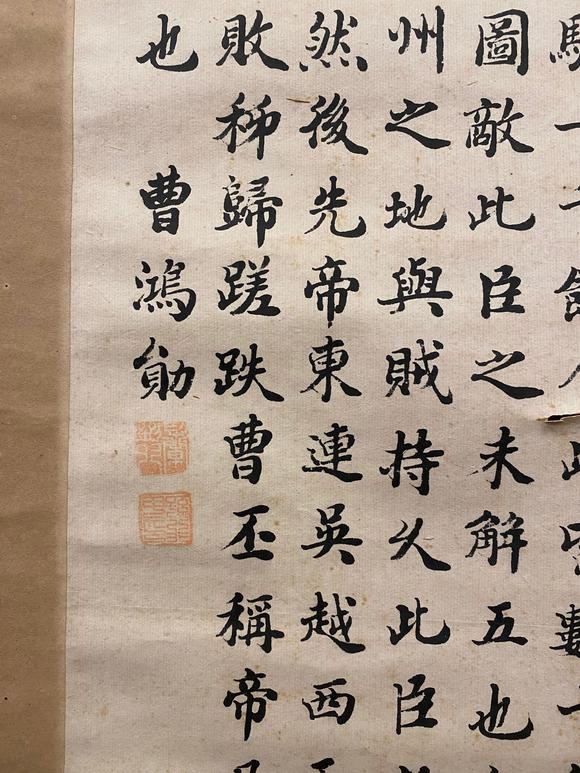 圖敵此臣之未解五也
州之地與賊持久此臣
然後先帝東連吳越西
敗秭歸蹉跌曹丕稱帝
也 曹鴻勛